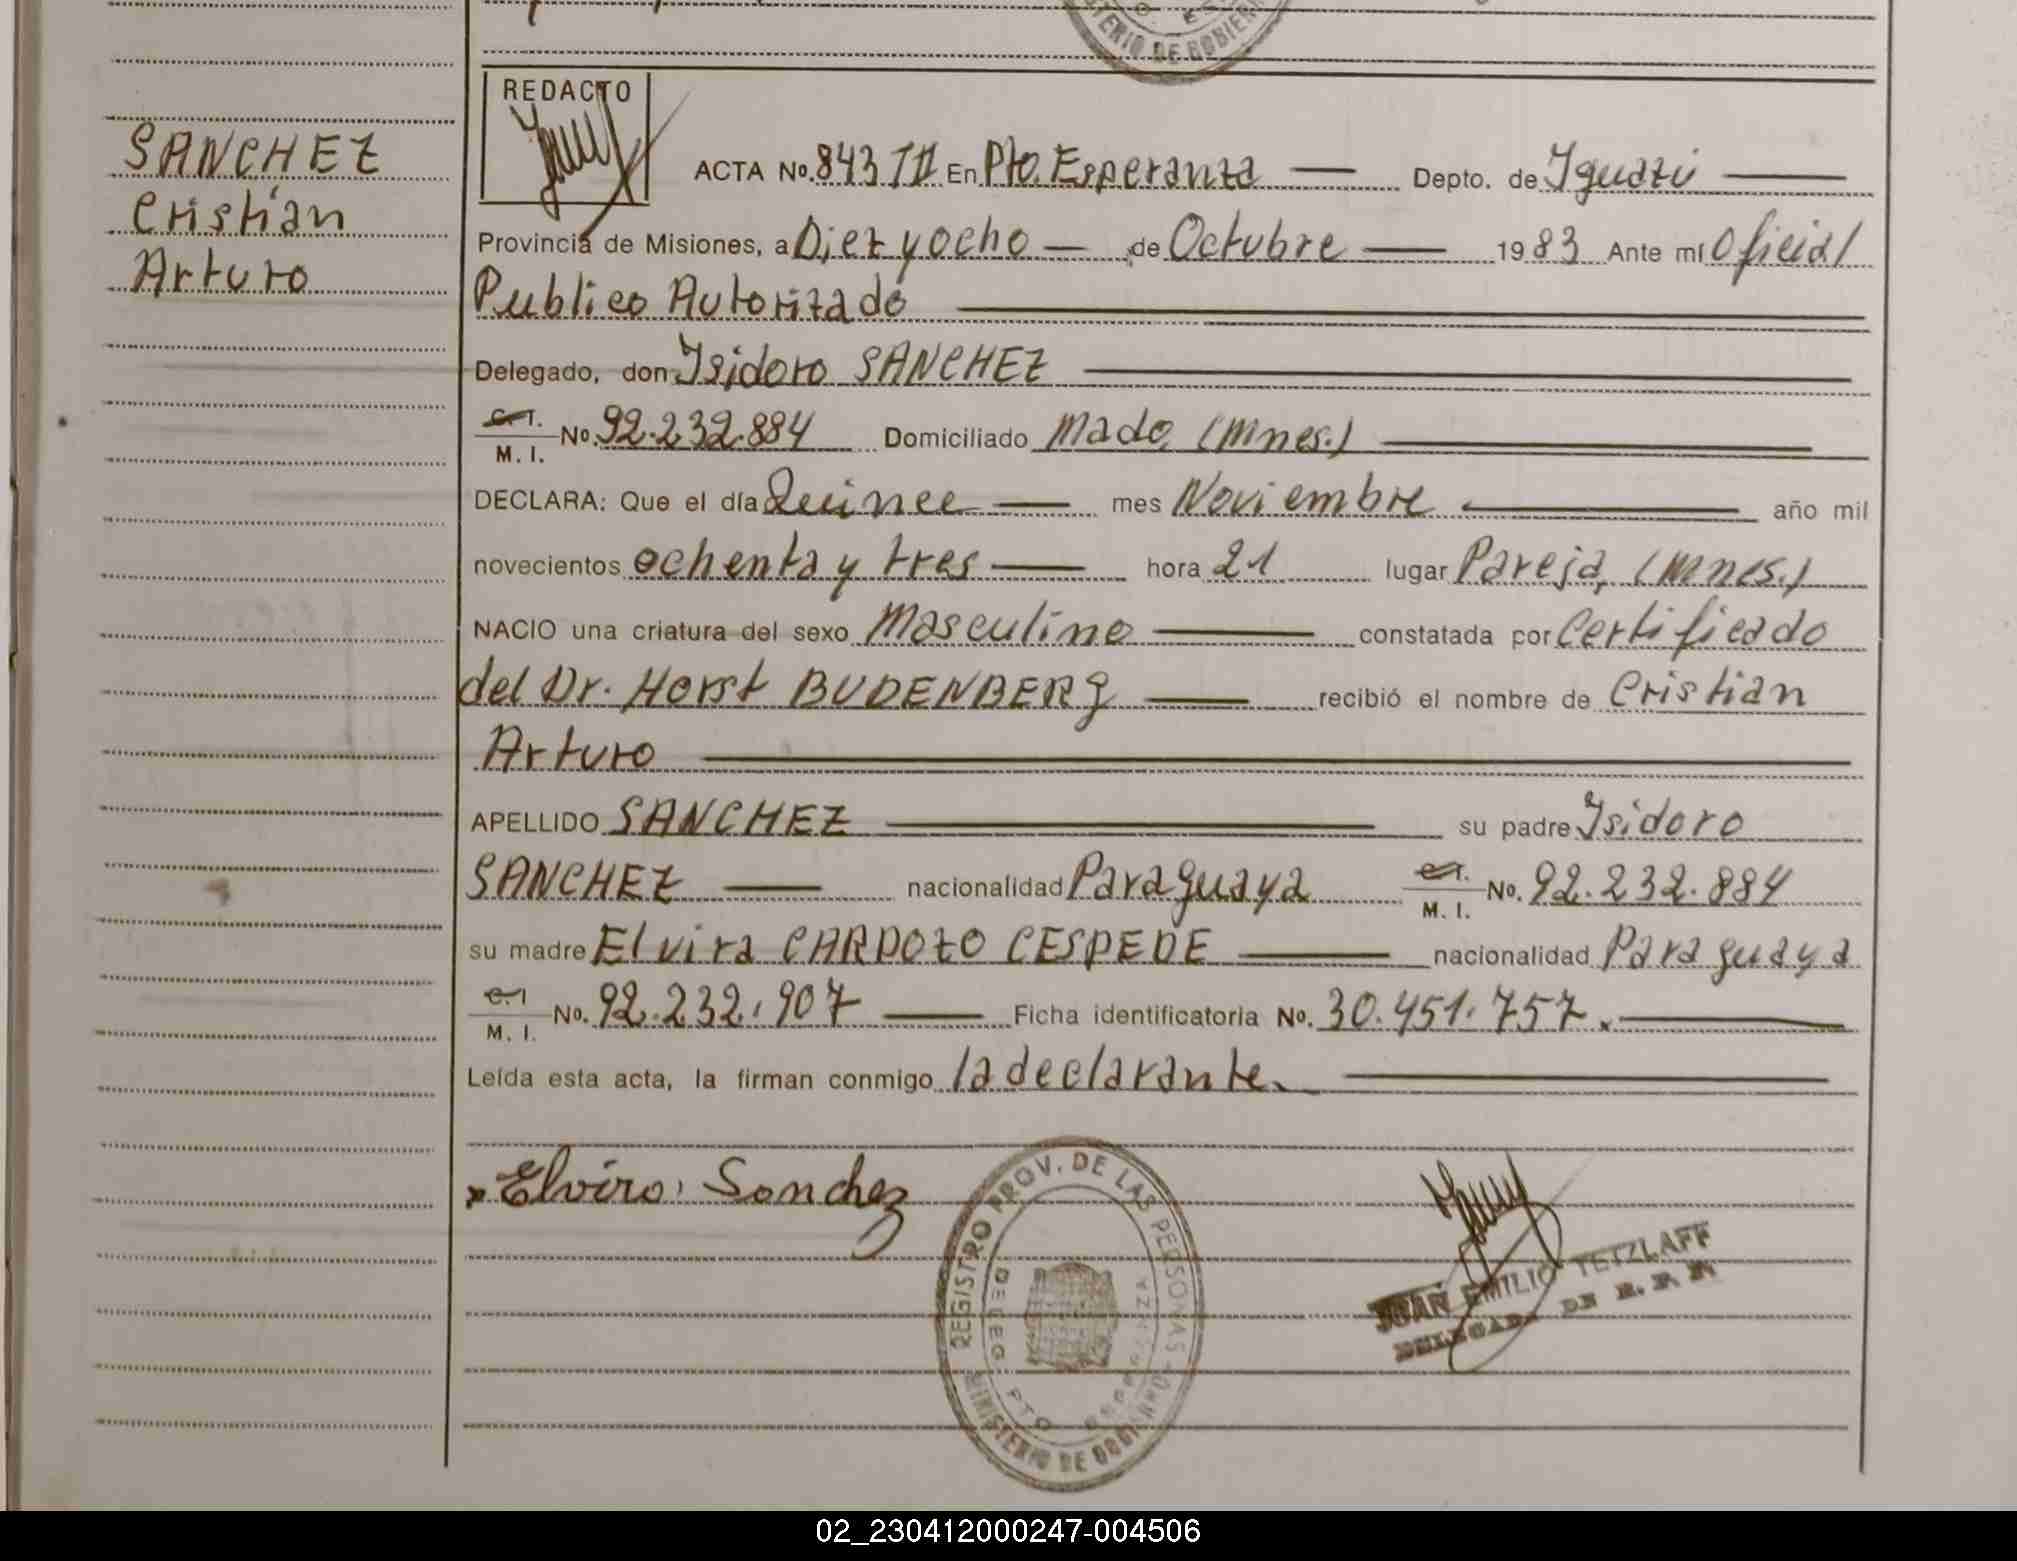 REDACTO
SANCHEZ
Cristian
Arturo
ACTA No. 843 TII En Pto. Esperanza Depto. de Iguazú
Provincia de Misiones, a Diez y ocho de Octubre 1983 Ante mí Oficial
Publico Autorizado
Delegado, don Isidoro SANCHEZ
C. I.
M. I. No. 92.232.884 Domiciliado Mado, (Mnes.)
DECLARA: Que el día Quince mes Noviembre año mil
novecientos ochenta y tres hora 21 lugar Pareja, (Mnes.)
NACIO una criatura del sexo Masculino constatada por Certificado
del Dr. Horst BUDENBERg recibió el nombre de Cristian
Arturo
APELLIDO SANCHEZ su padre Isidoro
SANCHEZ nacionalidad Paraguaya C. I. M. I. No. 92.232.884
su madre Elvira CARDOZO CESPEDE nacionalidad Paraguaya
C. I.
M. I. No. 92.232.907 Ficha identificatoria No. 30.451.757.
Leída esta acta, la firman conmigo la declarante.
Elviro Sonchez
REGISTRO PROV. DE LAS PERSONAS
MINISTERIO DE GOBIERNO
DELEG. PTO
JUAN EMILIO TETZLAFF
02_230412000247-004506